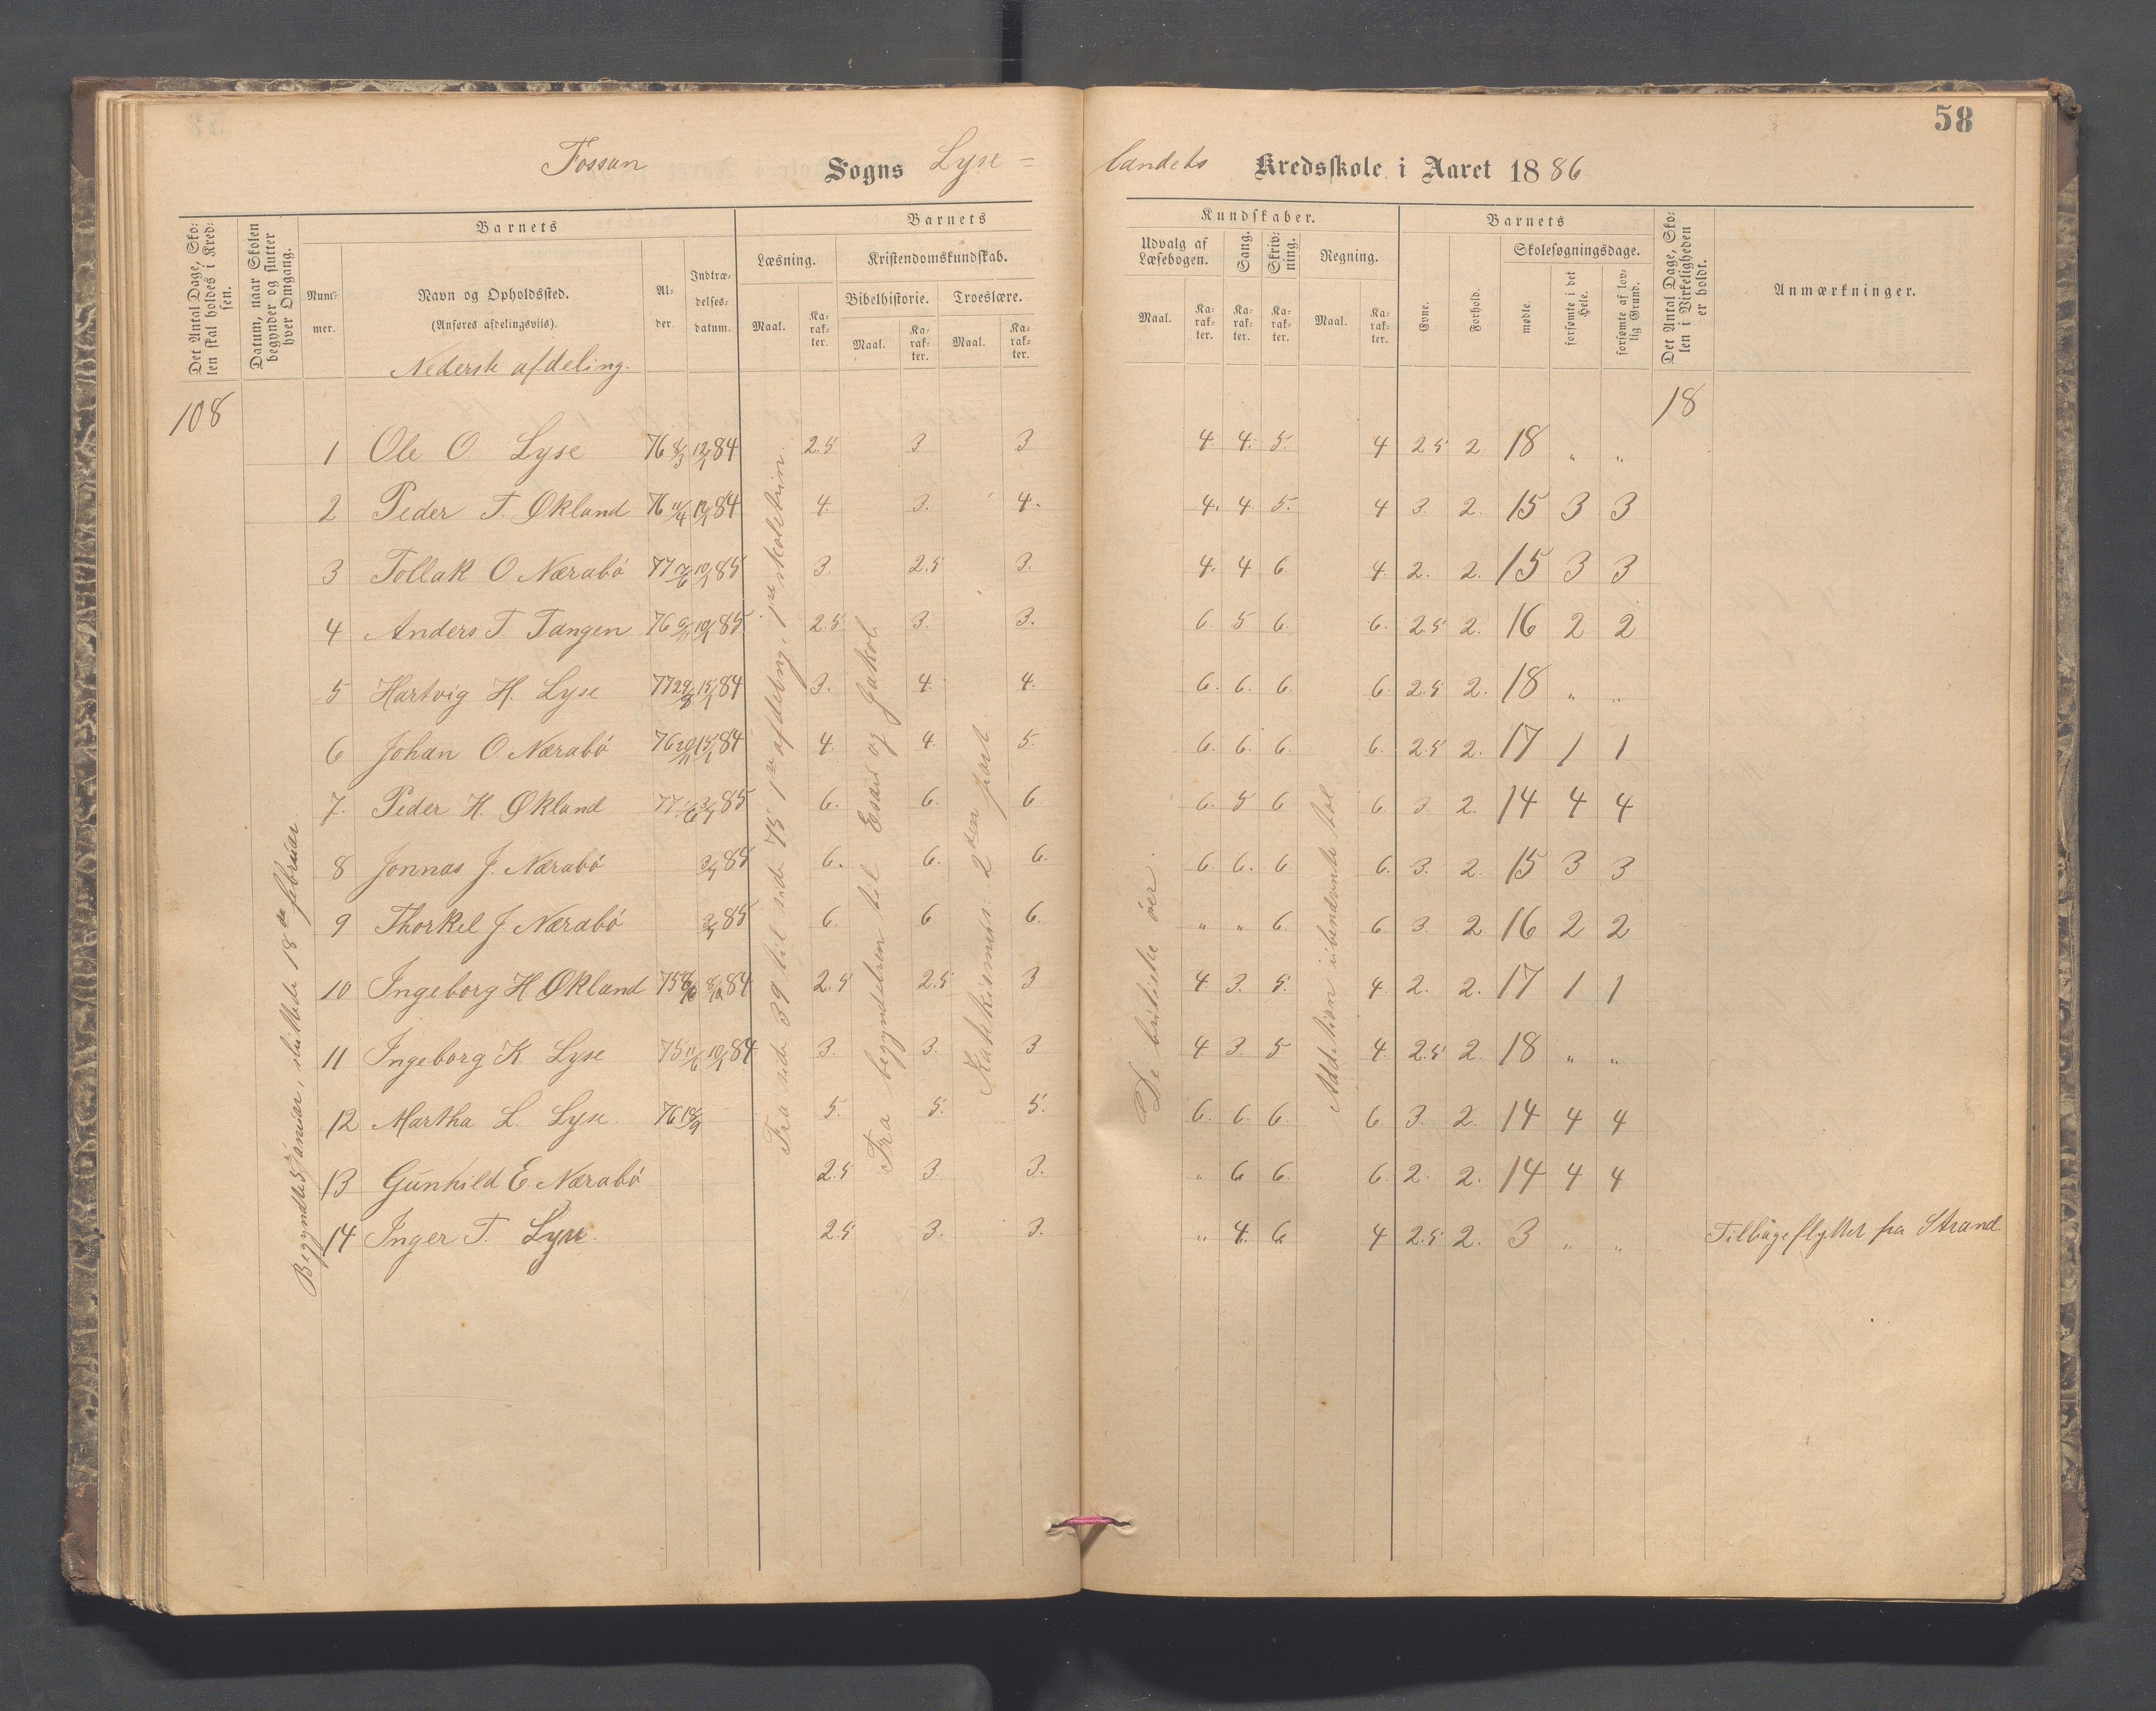 58
Fossan Sogns Lyse=
landets Kredsskole i Aaret 1886
Det Antal Dage, Skolen skal holdes i Kredsen.
Datum, naar Skolen begynder og slutter hver Omgang.
Barnets
Nummer.
Navn og Opholdssted.
(Anføres afdelingsviis).
Alder.
Indtrædelsesdatum.
Barnets
Læsning.
Maal.
Karakter.
Kristendomskundskab.
Bibelhistorie.
Maal.
Karakter.
Troeslære.
Maal.
Karakter.
Kundskaber.
Udvalg af Læsebogen.
Maal.
Karakter.
Sang.
Karakter.
Skrivning.
Karakter.
Regning.
Maal.
Karakter.
Barnets
Evne.
Forhold.
Skolesøgningsdage.
mødte.
forsømte i det Hele.
forsømte af lovlig Grund.
Det Antal Dage, Skolen i Virkeligheden er holdt.
Anmærkninger.
Nederste afdeling.
108 18
1 Ole O Lyse 76 8/3 12/1 84 2.5 3 3 4. 4. 5. 4 2.5 2. 18 " "
2 Peder T. Økland 76 11/4 12/1 84 4. 3. 4. 4. 4 5. 4 3. 2. 15 3 3
3 Tollak O. Nærabø 77 10/1 85 3. 2.5 3. 4. 4 6 4. 2. 2. 15 3 3
4 Anders T. Tangen 76 10/1 85 2.5 3. 3. 6 5 6. 6. 2.5 2. 16 2 2
5 Hartvig H. Lyse 77 29/8 15/1 84 3. 4. 4. 6. 6. 6. 6. 2.5 2. 18 " "
6 Johan O Nærabø 76 20/11 15/1 84 4. 4. 5. 6. 6. 6. 6. 2.5 2. 17 1 1
7. Peder H. Økland 77 85 6. 6. 6. 6. 5 6 6 3 2. 14 4 4
8 Jonnas J. Nærabø 85 6. 6. 6. 6. 6. 6. 6. 3. 2. 15 3 3
9 Thorkel J. Nærabø 85 6. 6. 6. " " 6. 6. 3. 2 16 2 2
10 Ingeborg H Økland 75 84 2.5 2.5 3 4. 3. 5. 4. 2. 2. 17 1 1
11 Ingeborg K Lyse 75 11/6 10/1 84 3. 3. 3 4 3. 5 4. 2.5 2. 18 " "
12 Martha L. Lyse. 76 18/9 5. 5. 5. 6. 6. 6. 6. 3. 2. 14 4 4
13 Gunhild E. Nærabø 2.5 3. 3. " 6 6. 6 2. 2. 14 4 4
14 Inger T. Lyse. 2.5 3. 3. " 4. 6. 4 2.5 2. 3 " " Tilbageflyttet fra Strand
Begyndte 5 januar, sluttede 18de februar.
Fra side 39 til side 75 1ste afdeling, 1ste skoletrin.
Fra begyndelsen til Esau og Jakob.
Katekismus: 2den part.
Addition i ubenævnte tal